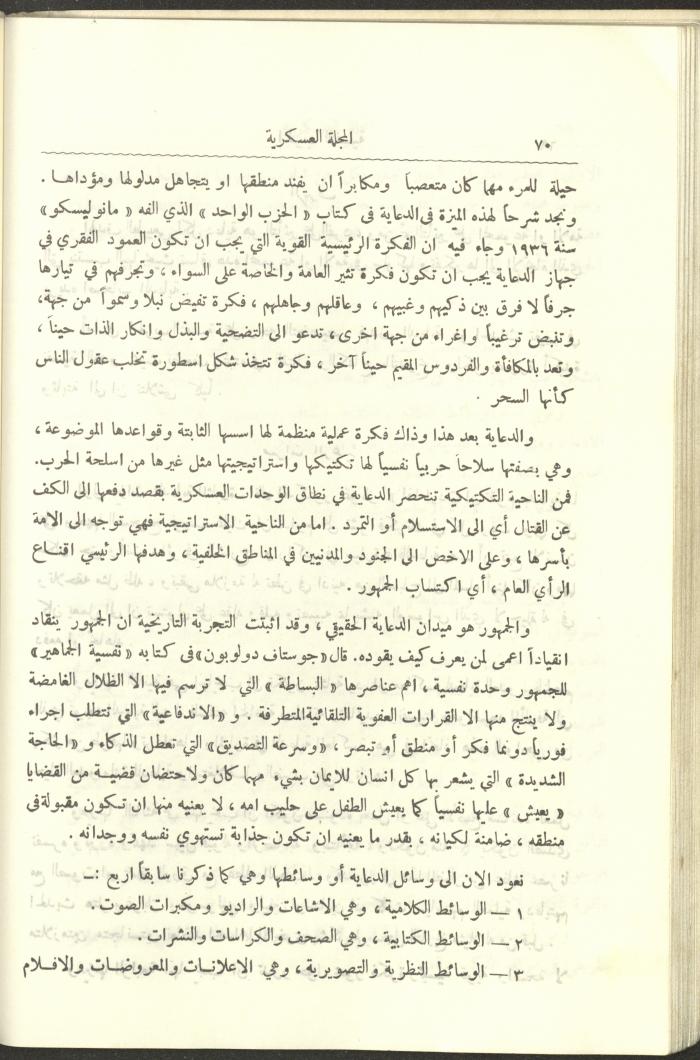 ٧٠
المجلة العسكرية
حيلة للمرء مهما كان متعصباً ومكابراً ان يفند منطقها او يتجاهل مدلولها ومؤداهـا .
ونجد شرحاً لهذه الميزة في الدعاية في كتاب « الحزب الواحد » الذي الفه « مانوليسكو »
سنة ١٩٣٦ وجاء فيه ان الفكرة الرئيسية القوية التي يجب ان تكون العمود الفقري في
جهاز الدعاية يجب ان تكون فكرة تثير العامة والخاصة على السواء ، وتجرفهم في تيارها
جرفاً لا فرق بين ذكيهم وغبيهم ، وعاقلهم وجاهلهم ، فكرة تفيض نبلا وسمواً من جهة،
وتنبض ترغيباً واغراء من جهة اخرى ، تدعو الى التضحية والبذل وانكار الذات حيناً ،
وتعد بالمكافأة والفردوس المقيم حيناً آخر ، فكرة تتخذ شكل اسطورة تخلب عقول الناس
كأنها السحر .
والدعاية بعد هذا وذاك فكرة عملية منظمة لها اسسها الثابتة وقواعدها الموضوعة ،
وهي بصفتها سلاحاً حربياً نفسياً لها تكتيكها واستراتيجيتها مثل غيرها من اسلحة الحرب.
فمن الناحية التكتيكية تنحصر الدعاية في نطاق الوحدات العسكرية بقصد دفعها الى الكف
عن القتال أي الى الاستسلام أو التمرد . اما من الناحية الاستراتيجية فهي توجه الى الامة
بأسرها ، وعلى الاخص الى الجنود والمدنيين في المناطق الخلفية ، وهدفها الرئيسي اقنـاع
الرأي العام ، أي اكتساب الجمهور .
والجمهور هو ميدان الدعاية الحقيقي ، وقد اثبتت التجربة التاريخية ان الجمهور ينقاد
انقياداً اعمى لمن يعرف كيف يقوده. قال «جوستاف دولوبون» في كتابه « نفسية الجماهير »
للجمهور وحدة نفسية ، اهم عناصرها « البساطة » التي لا ترسم فيها الا الظلال الغامضة
ولا ينتج منها الا القرارات العفوية التلقائية المتطرفة . و « الاندفاعية » التي تتطلب اجراء
فورياً دونما فكر أو منطق أو تبصر ، « وسرعة التصديق » التي تعطل الذكاء و « الحاجة
الشديدة » التي يشعر بها كل انسان للايمان بشيء مهما كان ولاحتضان قضيـة من القضايا
« يعيش » عليها نفسياً كما يعيش الطفل على حليب امه ، لا يعنيه منها ان تكون مقبولة في
منطقه ، ضامنة لكيانه ، بقدر ما يعنيه ان تكون جذابة تستهوي نفسه ووجدانه .
نعود الان الى وسائل الدعاية أو وسائطها وهي كما ذكرنا سابقاً اربع :ــ
١ ـــ الوسائط الكلامية ، وهي الاشاعات والراديو ومكبرات الصوت .
٢ ـــ الوسائط الكتابية ، وهي الصحف والكراسات والنشرات .
٣ ـــ الوسائط النظرية والتصويرية ، وهي الاعلانـات والمعروضـات والافـلام